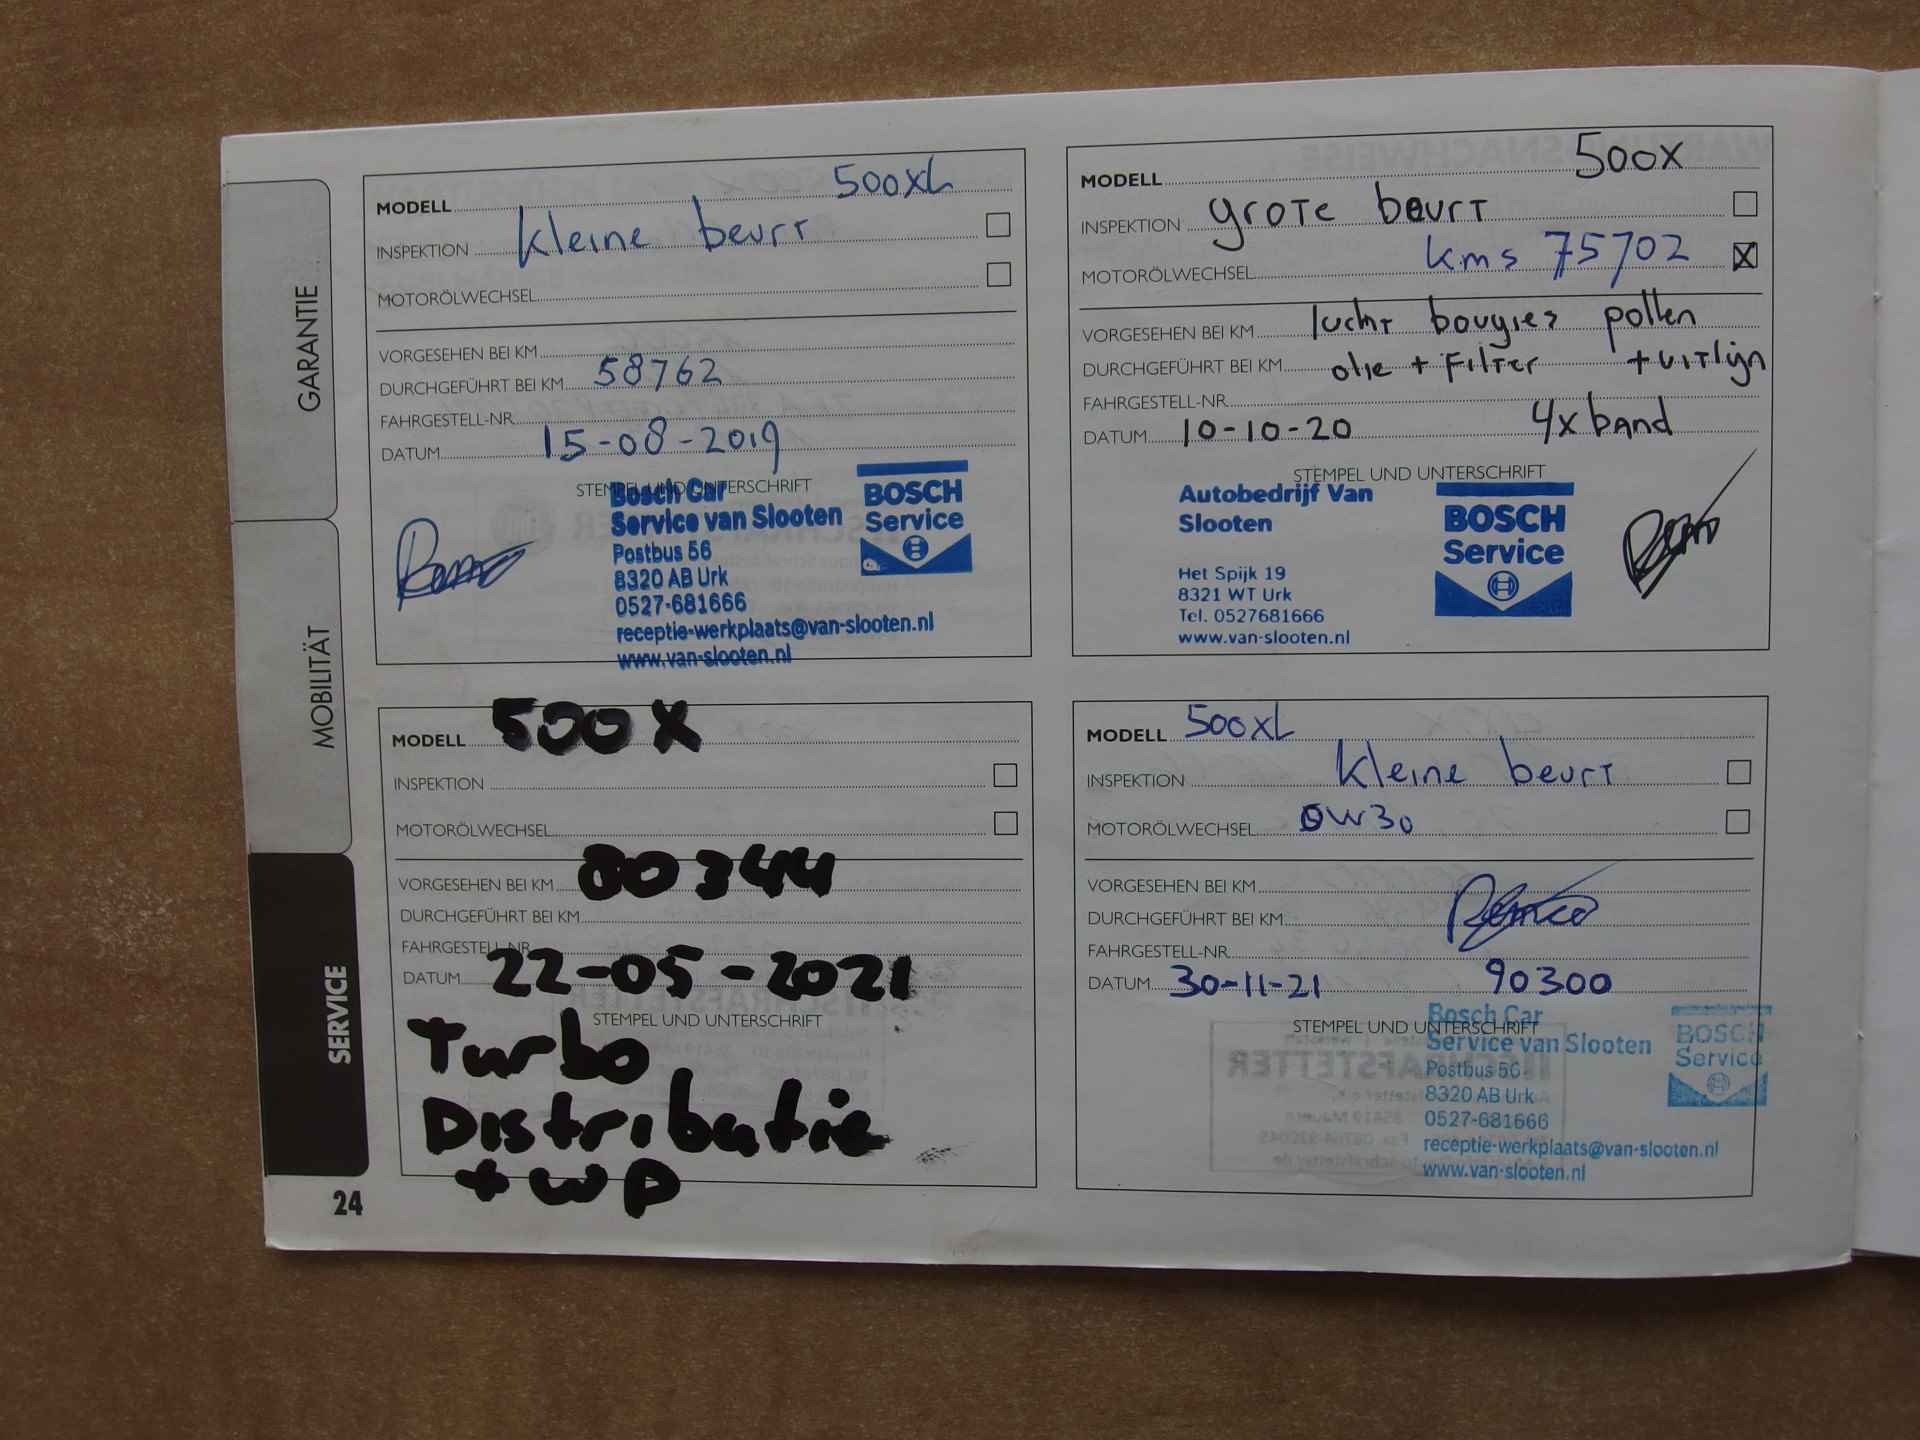 GARANTIE
MOBILITÄT
SERVICE
24
MODELL 500XL
INSPEKTION kleine beurt
MOTORÖLWECHSEL
VORGESEHEN BEI KM
DURCHGEFÜHRT BEI KM 58762
FAHRGESTELL-NR.
DATUM 15-08-2019
STEMPEL UND UNTERSCHRIFT
Bosch Car
Service van Slooten
Postbus 56
8320 AB Urk
0527-681666
receptie-werkplaats@van-slooten.nl
www.van-slooten.nl
BOSCH
Service
MODELL 500X
INSPEKTION grote beurt
MOTORÖLWECHSEL kms 75702
VORGESEHEN BEI KM lucht bougies pollen
DURCHGEFÜHRT BEI KM olie + Filter + uitlijn
FAHRGESTELL-NR.
DATUM 10-10-20 4x band
STEMPEL UND UNTERSCHRIFT
Autobedrijf Van
Slooten
Het Spijk 19
8321 WT Urk
Tel. 0527681666
www.van-slooten.nl
BOSCH
Service
MODELL 500X
INSPEKTION
MOTORÖLWECHSEL
VORGESEHEN BEI KM 80344
DURCHGEFÜHRT BEI KM
FAHRGESTELL-NR.
DATUM 22-05-2021
STEMPEL UND UNTERSCHRIFT
Turbo
Distributie
+ WP
MODELL 500XL
INSPEKTION kleine beurt
MOTORÖLWECHSEL 0W30
VORGESEHEN BEI KM
DURCHGEFÜHRT BEI KM
FAHRGESTELL-NR.
DATUM 30-11-21 90300
STEMPEL UND UNTERSCHRIFT
Bosch Car
Service van Slooten
Postbus 56
8320 AB Urk
0527-681666
receptie-werkplaats@van-slooten.nl
www.van-slooten.nl
BOSCH
Service